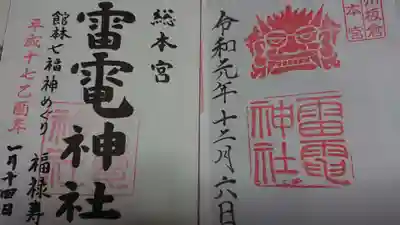 州板倉
本宮
雷電
神社
令和元年十二月六日
総本宮
雷電神社
館林七福神めぐり 福禄寿
平成十七乙酉年
一月十四日